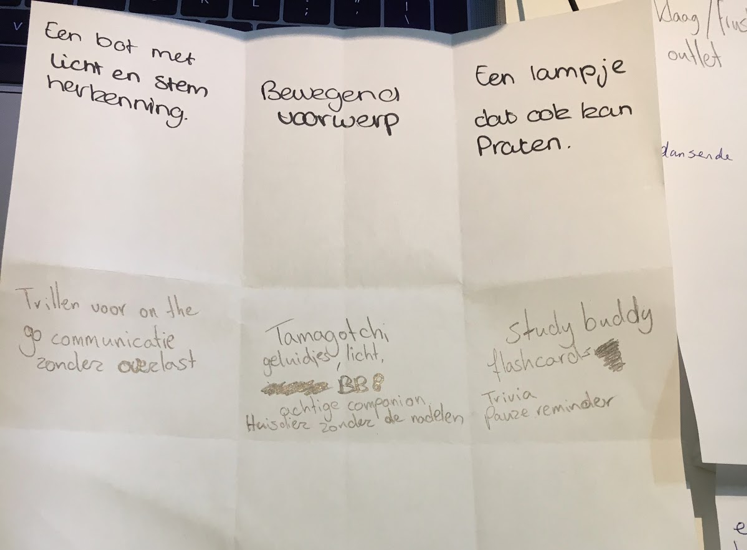 Een bot met
licht en stem
herkenning.
Bewegend
voorwerp
Een lampje
dat ook kan
Praten.
Trillen voor on the
go communicatie
zonder overlast
Tamagotchi
geluidjes, licht,
BB8
achtige companion,
Huisdier zonder de nadelen
study buddy
flashcards
Trivia
Pauze reminder
klaag /
outlet
dansende